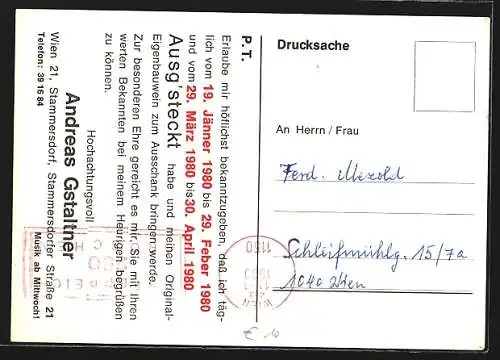 P. T.
Erlaube mir höflichst bekanntzugeben, daß ich täg-
lich vom 19. Jänner 1980 bis 29. Feber 1980
und vom 29. März 1980 bis 30. April 1980
Ausg'steckt habe und meinen Original-
Eigenbauwein zum Ausschank bringen werde.
Zur besonderen Ehre gereicht es mir, Sie mit Ihren
werten Bekannten bei meinem Heurigen begrüßen
zu können.
Hochachtungsvoll
Andreas Gstaltner
Wien 21, Stammersdorf, Stammersdorfer Straße 21
Telefon: 39 16 84 Musik ab Mittwoch!
Drucksache
An Herrn / Frau
Ferd.
Schleifmühlg. 15/7a
1040 Wien
1150
WIEN
€ 10